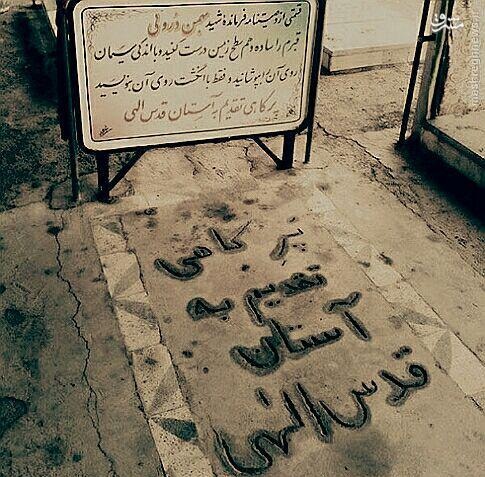 قسمتی از وصیتنامه فرمانده شهید بهمن درولی
قبرم را ساده و هم سطح زمین درست کنید و با اندکی سیمان
روی آن را بپوشانید و فقط با انگشت روی آن بنویسید
پرکاهی تقدیم به آستان قدس الهی
پر کاهی
تقدیم به
آستان
قدس الهی
مشرق
mashreghnews.ir